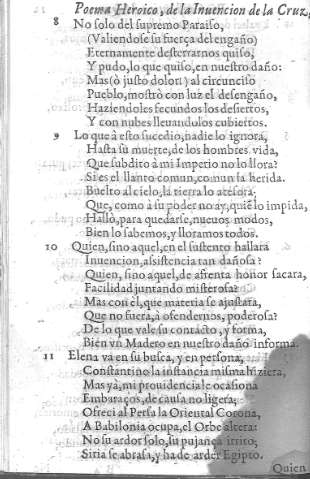 Poema Heroico, de la Inuencion de la Cruz,
8 No solo del supremo Paraiso,
(Valiendose su fuerça del engaño)
Eternamente desterrarnos quiso,
Y pudo, lo que quiso, en nuestro daño:
Mas (ò justo dolor!) al circunciso
Pueblo, mostrò con luz el desengaño,
Haziendoles fecundos los desiertos,
Y con nubes lleuandolos cubiertos.
9 Lo que à esto sucedio, nadie lo ignora,
Hasta su muerte, de los hombres vida,
Que subdito à mi Imperio no lo llora?
Si es el llanto comun, comun la herida.
Buelto al cielo, la tierra lo atesora;
Que, como à su poder no ay, quiē lo impida,
Hallò, para quedarse, nueuos modos,
Bien lo sabemos, y lloramos todos.
10 Quien, sino aquel, en el sustento hallara
Inuencion, assistencia tan dañosa?
Quien, sino aquel, de afrenta honor sacara,
Facilidad juntando misterosa?
Mas con èl, que materia se ajustara,
Que no fuera, à ofendernos, poderosa?
De lo que vale su contacto, y forma,
Bien vn Madero en nuestro daño informa.
11 Elena va en su busca, y en persona,
Constantino la instancia misma hiziera,
Mas yà, mi prouidencia le ocasiona
Embaraços, de causa no ligera;
Ofreci al Persa la Oriental Corona,
A Babilonia ocupa, el Orbe altera:
No su ardor solo, su pujança irrito;
Siria se abrasa, y ha de arder Egipto.
Quien